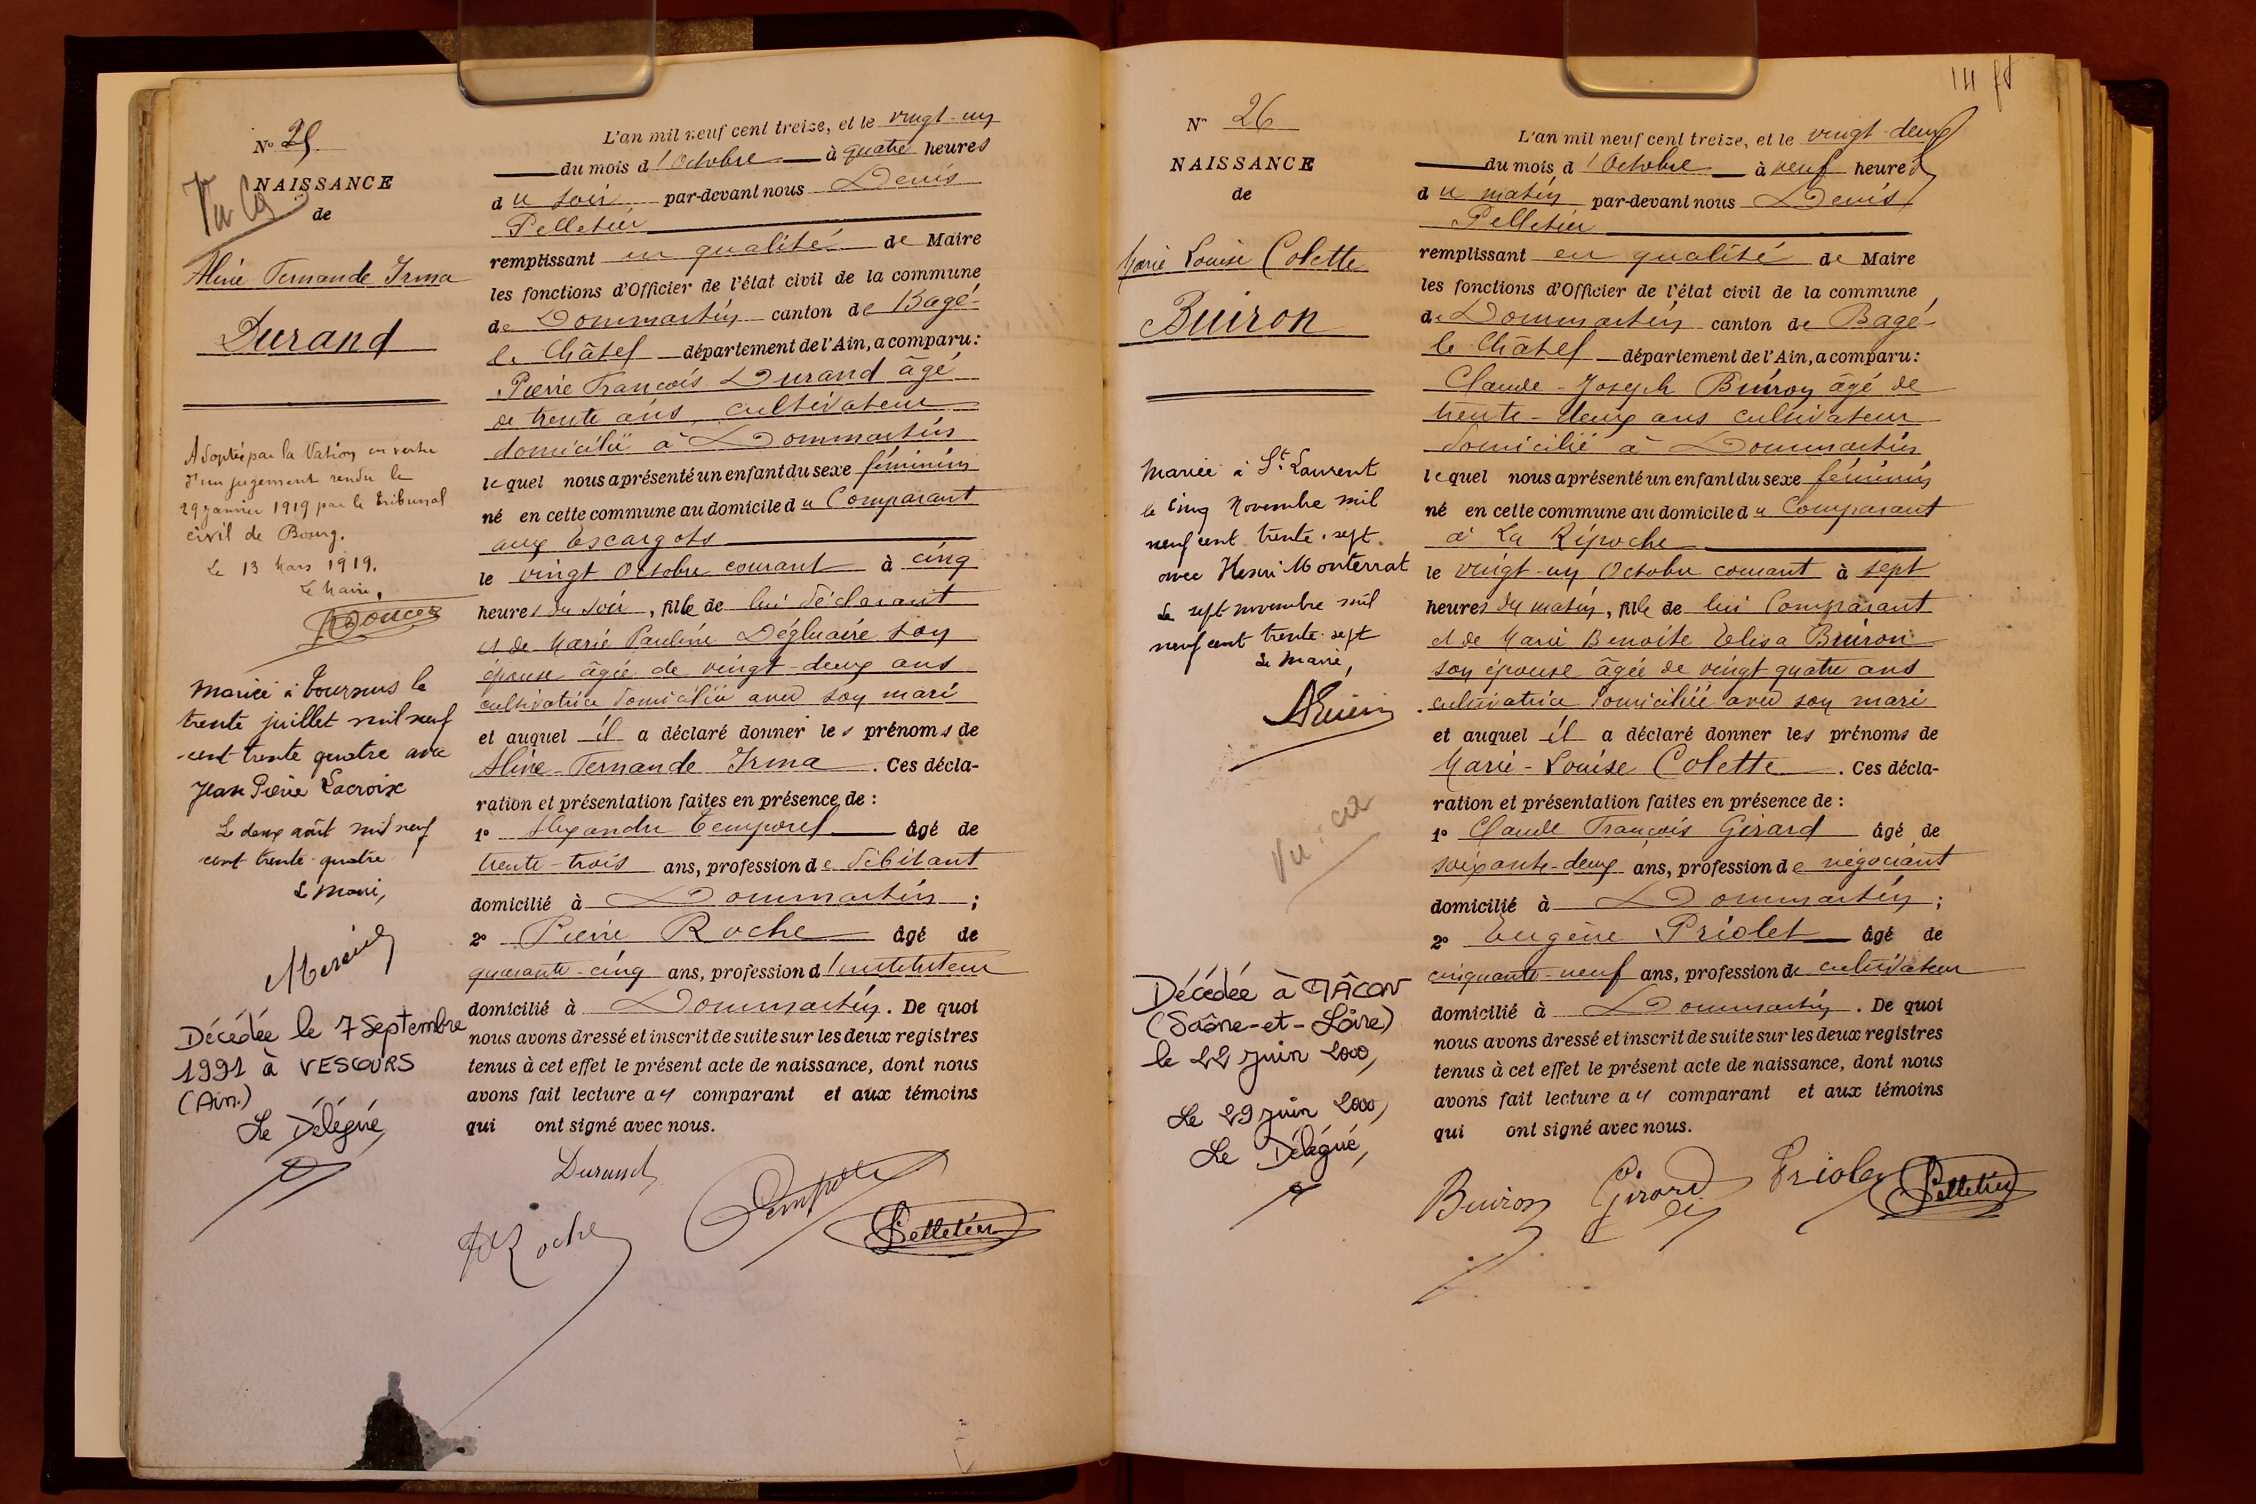 N° 25
Vu
NAISSANCE
de
Aline Fernande Irma
Durand
Adoptée par la Nation en vertu
d'un jugement rendu le
29 janvier 1919 par le tribunal
civil de Bourg.
Le 13 Mars 1919.
Le Maire,
Mariée à Tournus le
trente juillet mil neuf
-cent trente quatre avec
Jean Pierre Lacroix
Le deux août mil neuf
cent trente-quatre
Le Maire,
Décédée le 7 Septembre
1991 à VESCOURS
(Ain.)
Le Délégué,
L'an mil neuf cent treize, et le vingt-un
du mois d'Octobre à quatre heures
du soir par-devant nous Denis
Pelletier
remplissant en qualité de Maire
les fonctions d'Officier de l'état civil de la commune
de Dommartin canton de Bagé-
le Châtel département de l'Ain, a comparu:
Pierre François Durand âgé
de trente ans, cultivateur
domicilié à Dommartin
lequel nous a présenté un enfant du sexe féminin
né en cette commune au domicile du Comparant
aux Escargots
le vingt Octobre courant à cinq
heures du soir, fille de lui déclarant
et de Marie Pauline Dégluaire son
épouse âgée de vingt-deux ans
cultivatrice domiciliée avec son mari
et auquel il a déclaré donner les prénoms de
Aline-Fernande Irma. Ces décla-
ration et présentation faites en présence de :
1° Alexandre Temporel âgé de
trente-trois ans, profession de débitant
domicilié à Dommartin ;
2° Pierre Roche âgé de
quarante-cinq ans, profession d'instituteur
domicilié à Dommartin. De quoi
nous avons dressé et inscrit de suite sur les deux registres
tenus à cet effet le présent acte de naissance, dont nous
avons fait lecture au comparant et aux témoins
qui ont signé avec nous.
Durand
Roche
Pelletier
N° 26
NAISSANCE
de
Marie Louise Colette
Buiron
Mariée à St Laurent
le cinq Novembre mil
neuf cent trente-sept
avec Henri Monterrat
Le sept novembre mil
neuf cent trente-sept
Le Maire,
Vu :
Décédée à MÂCON
(Saône-et-Loire)
le 22 Juin 2000,
Le 29 Juin 2000,
Le Délégué,
L'an mil neuf cent treize, et le vingt-deux
du mois d'Octobre à neuf heures
du matin par-devant nous Denis
Pelletier
remplissant en qualité de Maire
les fonctions d'Officier de l'état civil de la commune
de Dommartin canton de Bagé-
le Châtel département de l'Ain, a comparu:
Claude-Joseph Buiron âgé de
trente-deux ans cultivateur
domicilié à Dommartin
lequel nous a présenté un enfant du sexe féminin
né en cette commune au domicile du Comparant
à La Ripoche
le vingt-un Octobre courant à sept
heures du matin, fille de lui Comparant
et de Marie Benoite Elisa Buiron
son épouse âgée de vingt quatre ans
cultivatrice domiciliée avec son mari
et auquel il a déclaré donner les prénoms de
Marie-Louise Colette. Ces décla-
ration et présentation faites en présence de :
1° Claude François Girard âgé de
soixante-deux ans, profession de négociant
domicilié à Dommartin ;
2° Eugène Priolet âgé de
cinquante-neuf ans, profession de cultivateur
domicilié à Dommartin. De quoi
nous avons dressé et inscrit de suite sur les deux registres
tenus à cet effet le présent acte de naissance, dont nous
avons fait lecture au comparant et aux témoins
qui ont signé avec nous.
Buiron Girard Priolet Pelletier